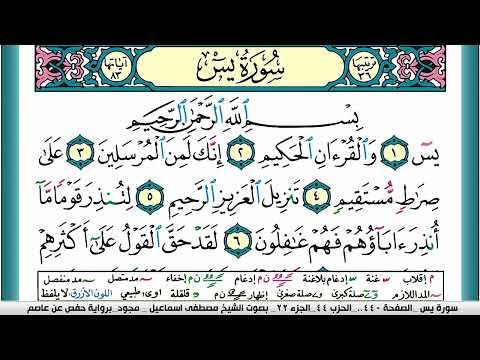 ترتيبها ٣٦
سورة يس
آياتها ٨٣
بِسْمِ ٱللَّهِ ٱلرَّحْمَٰنِ ٱلرَّحِيمِ
يسٓ ١ وَٱلْقُرْءَانِ ٱلْحَكِيمِ ٢ إِنَّكَ لَمِنَ ٱلْمُرْسَلِينَ ٣ عَلَىٰ
صِرَٰطٍ مُّسْتَقِيمٍ ٤ تَنزِيلَ ٱلْعَزِيزِ ٱلرَّحِيمِ ٥ لِتُنذِرَ قَوْمًا مَّآ
أُنذِرَ ءَابَآؤُهُمْ فَهُمْ غَٰفِلُونَ ٦ لَقَدْ حَقَّ ٱلْقَوْلُ عَلَىٰٓ أَكْثَرِهِمْ
م إقلاب غنة إدغام بلاغنة إدغام إخفاء مد متصل مد منفصل
المد اللازم صلة كبرى و صلة صغرى إظهار قلقلة اوى: طبيعي اللون الأزرق: لا يلفظ
سورة يس _الصفحة ٤٤٠_ الحزب ٤٤_ الجزء ٢٢ _ بصوت الشيخ مصطفى اسماعيل _ مجود _ برواية حفص عن عاصم